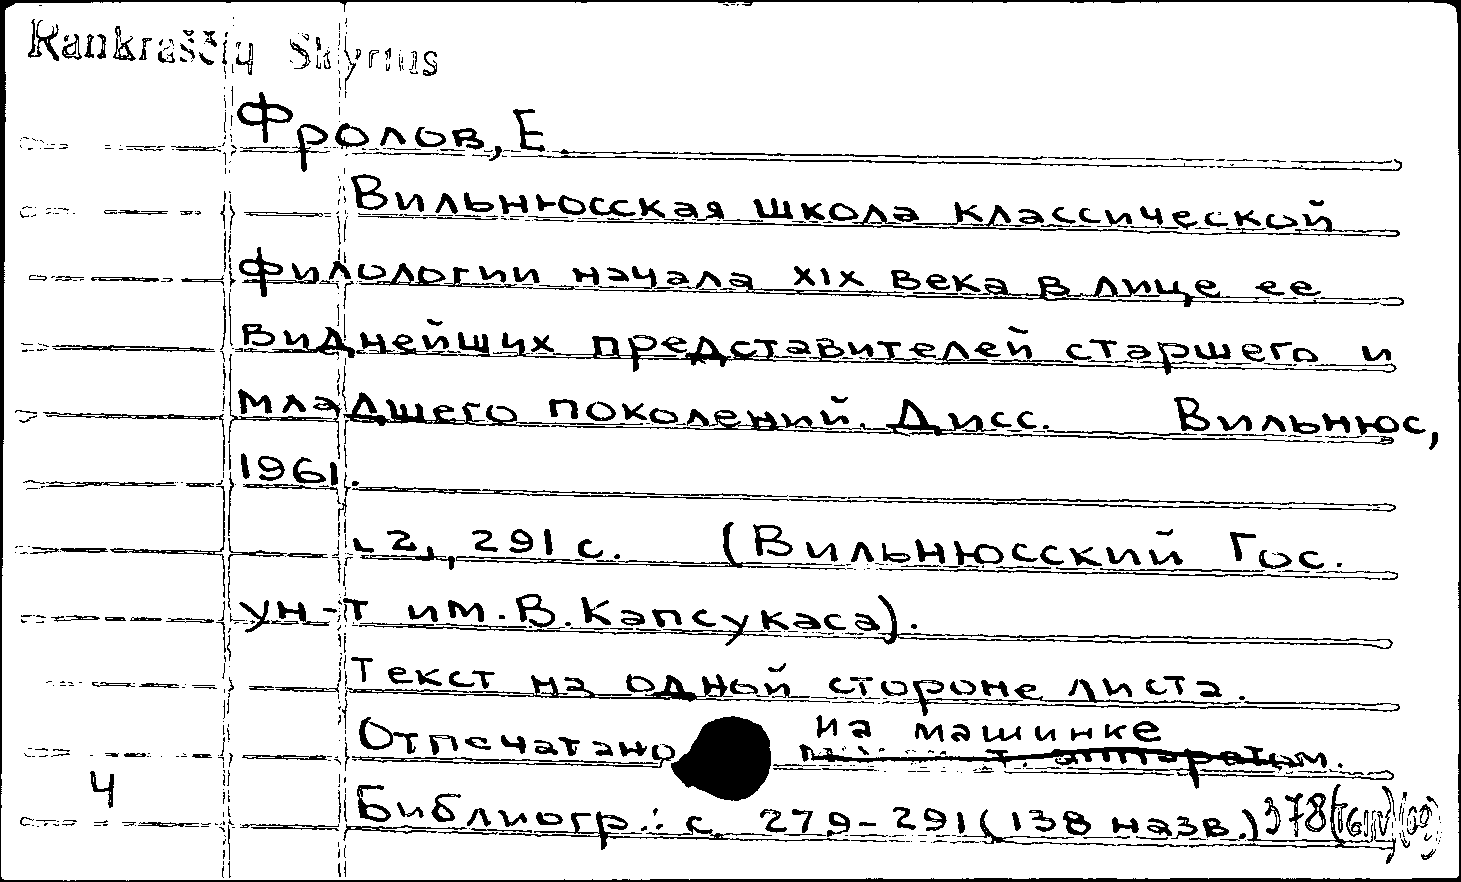 Rankraščių Skyrius
Фролов, Е.
Вильнюсская школа классической
филологии начала XIX века в лице ее
виднейших представителей старшего и
младшего поколений. Дисс. Вильнюс,
1961.
[2], 291 с. (Вильнюсский Гос.
ун-т им. В. Капсукаса).
Текст на одной стороне листа.
Отпечатано на машинке
т. аппаратом.
4
Библиогр.: с. 279-291 (138 назв.) 378